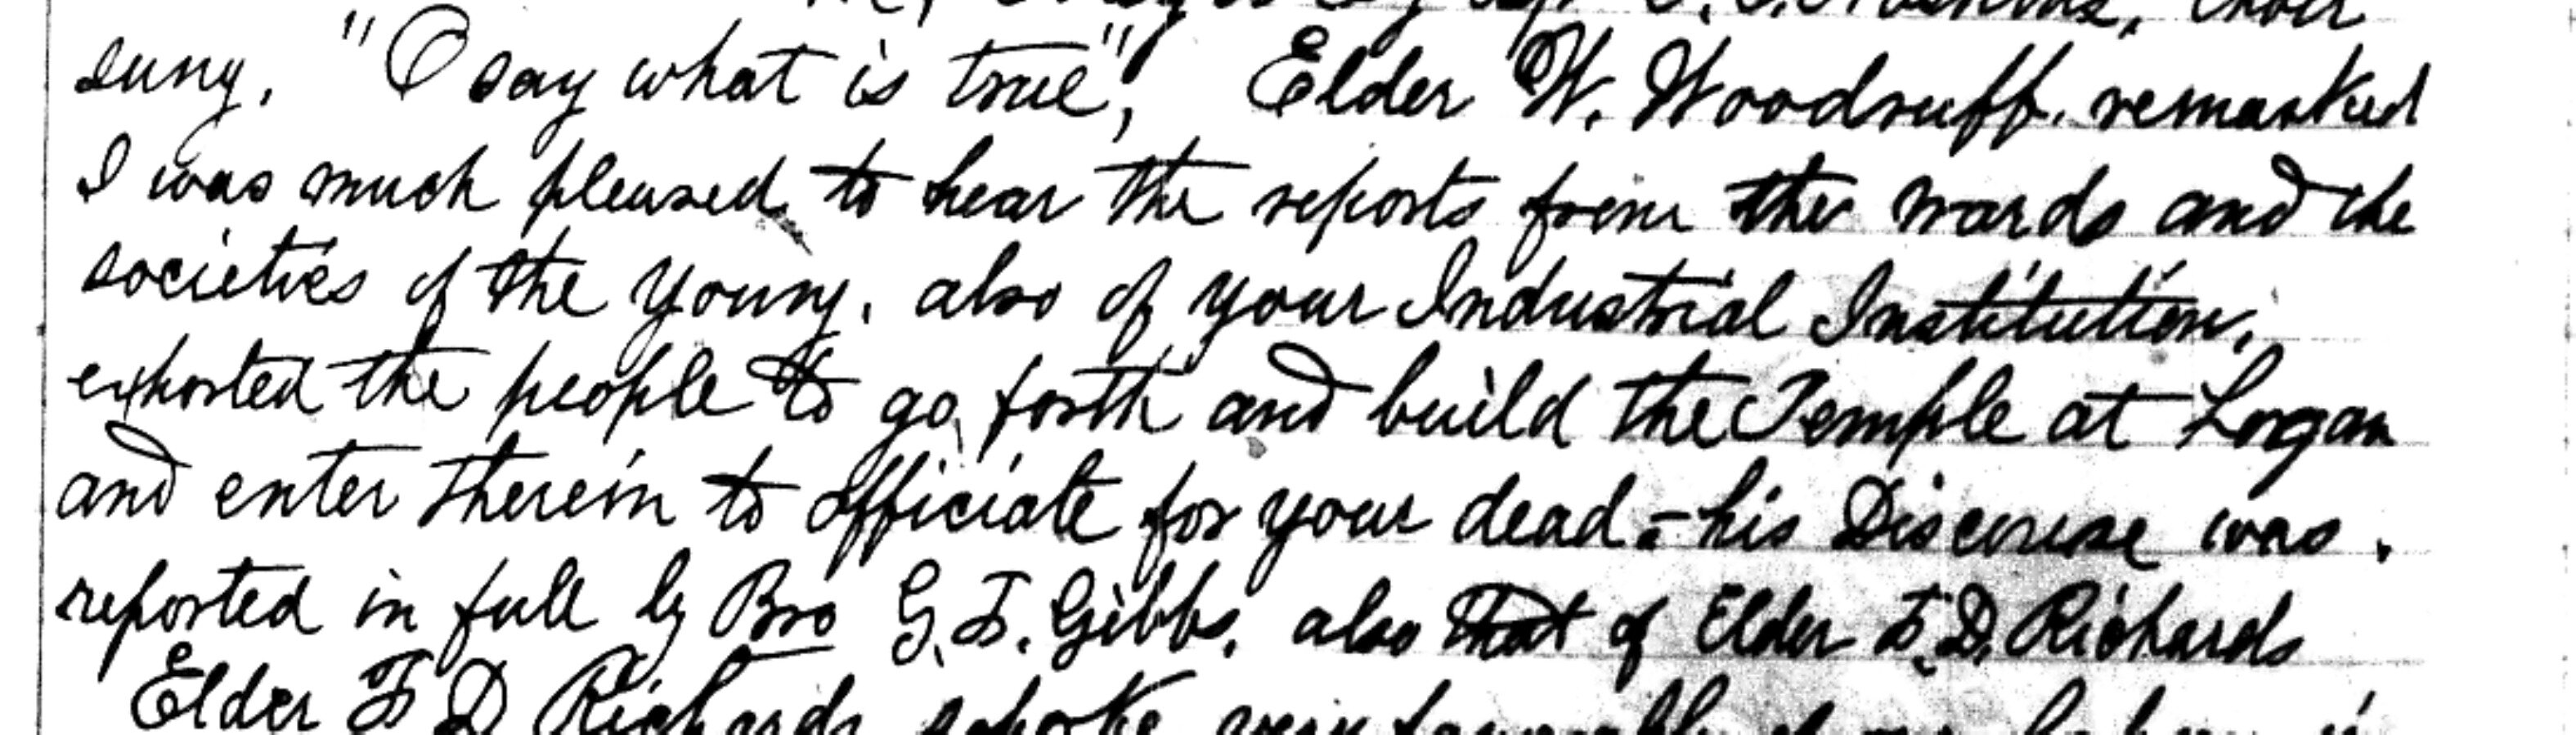 sung, "O say what is true", Elder W. Woodruff. remarked
I was much pleased to hear the reports from the wards and the
societies of the Young, also of your Industrial Institution,
exhorted the people to go forth and build the Temple at Logan
and enter therein to officiate for your dead - his Discourse was.
reported in full by Bro G. F. Gibbs, also that of Elder F. D. Richards
Elder F D Richards spoke very favorably of our